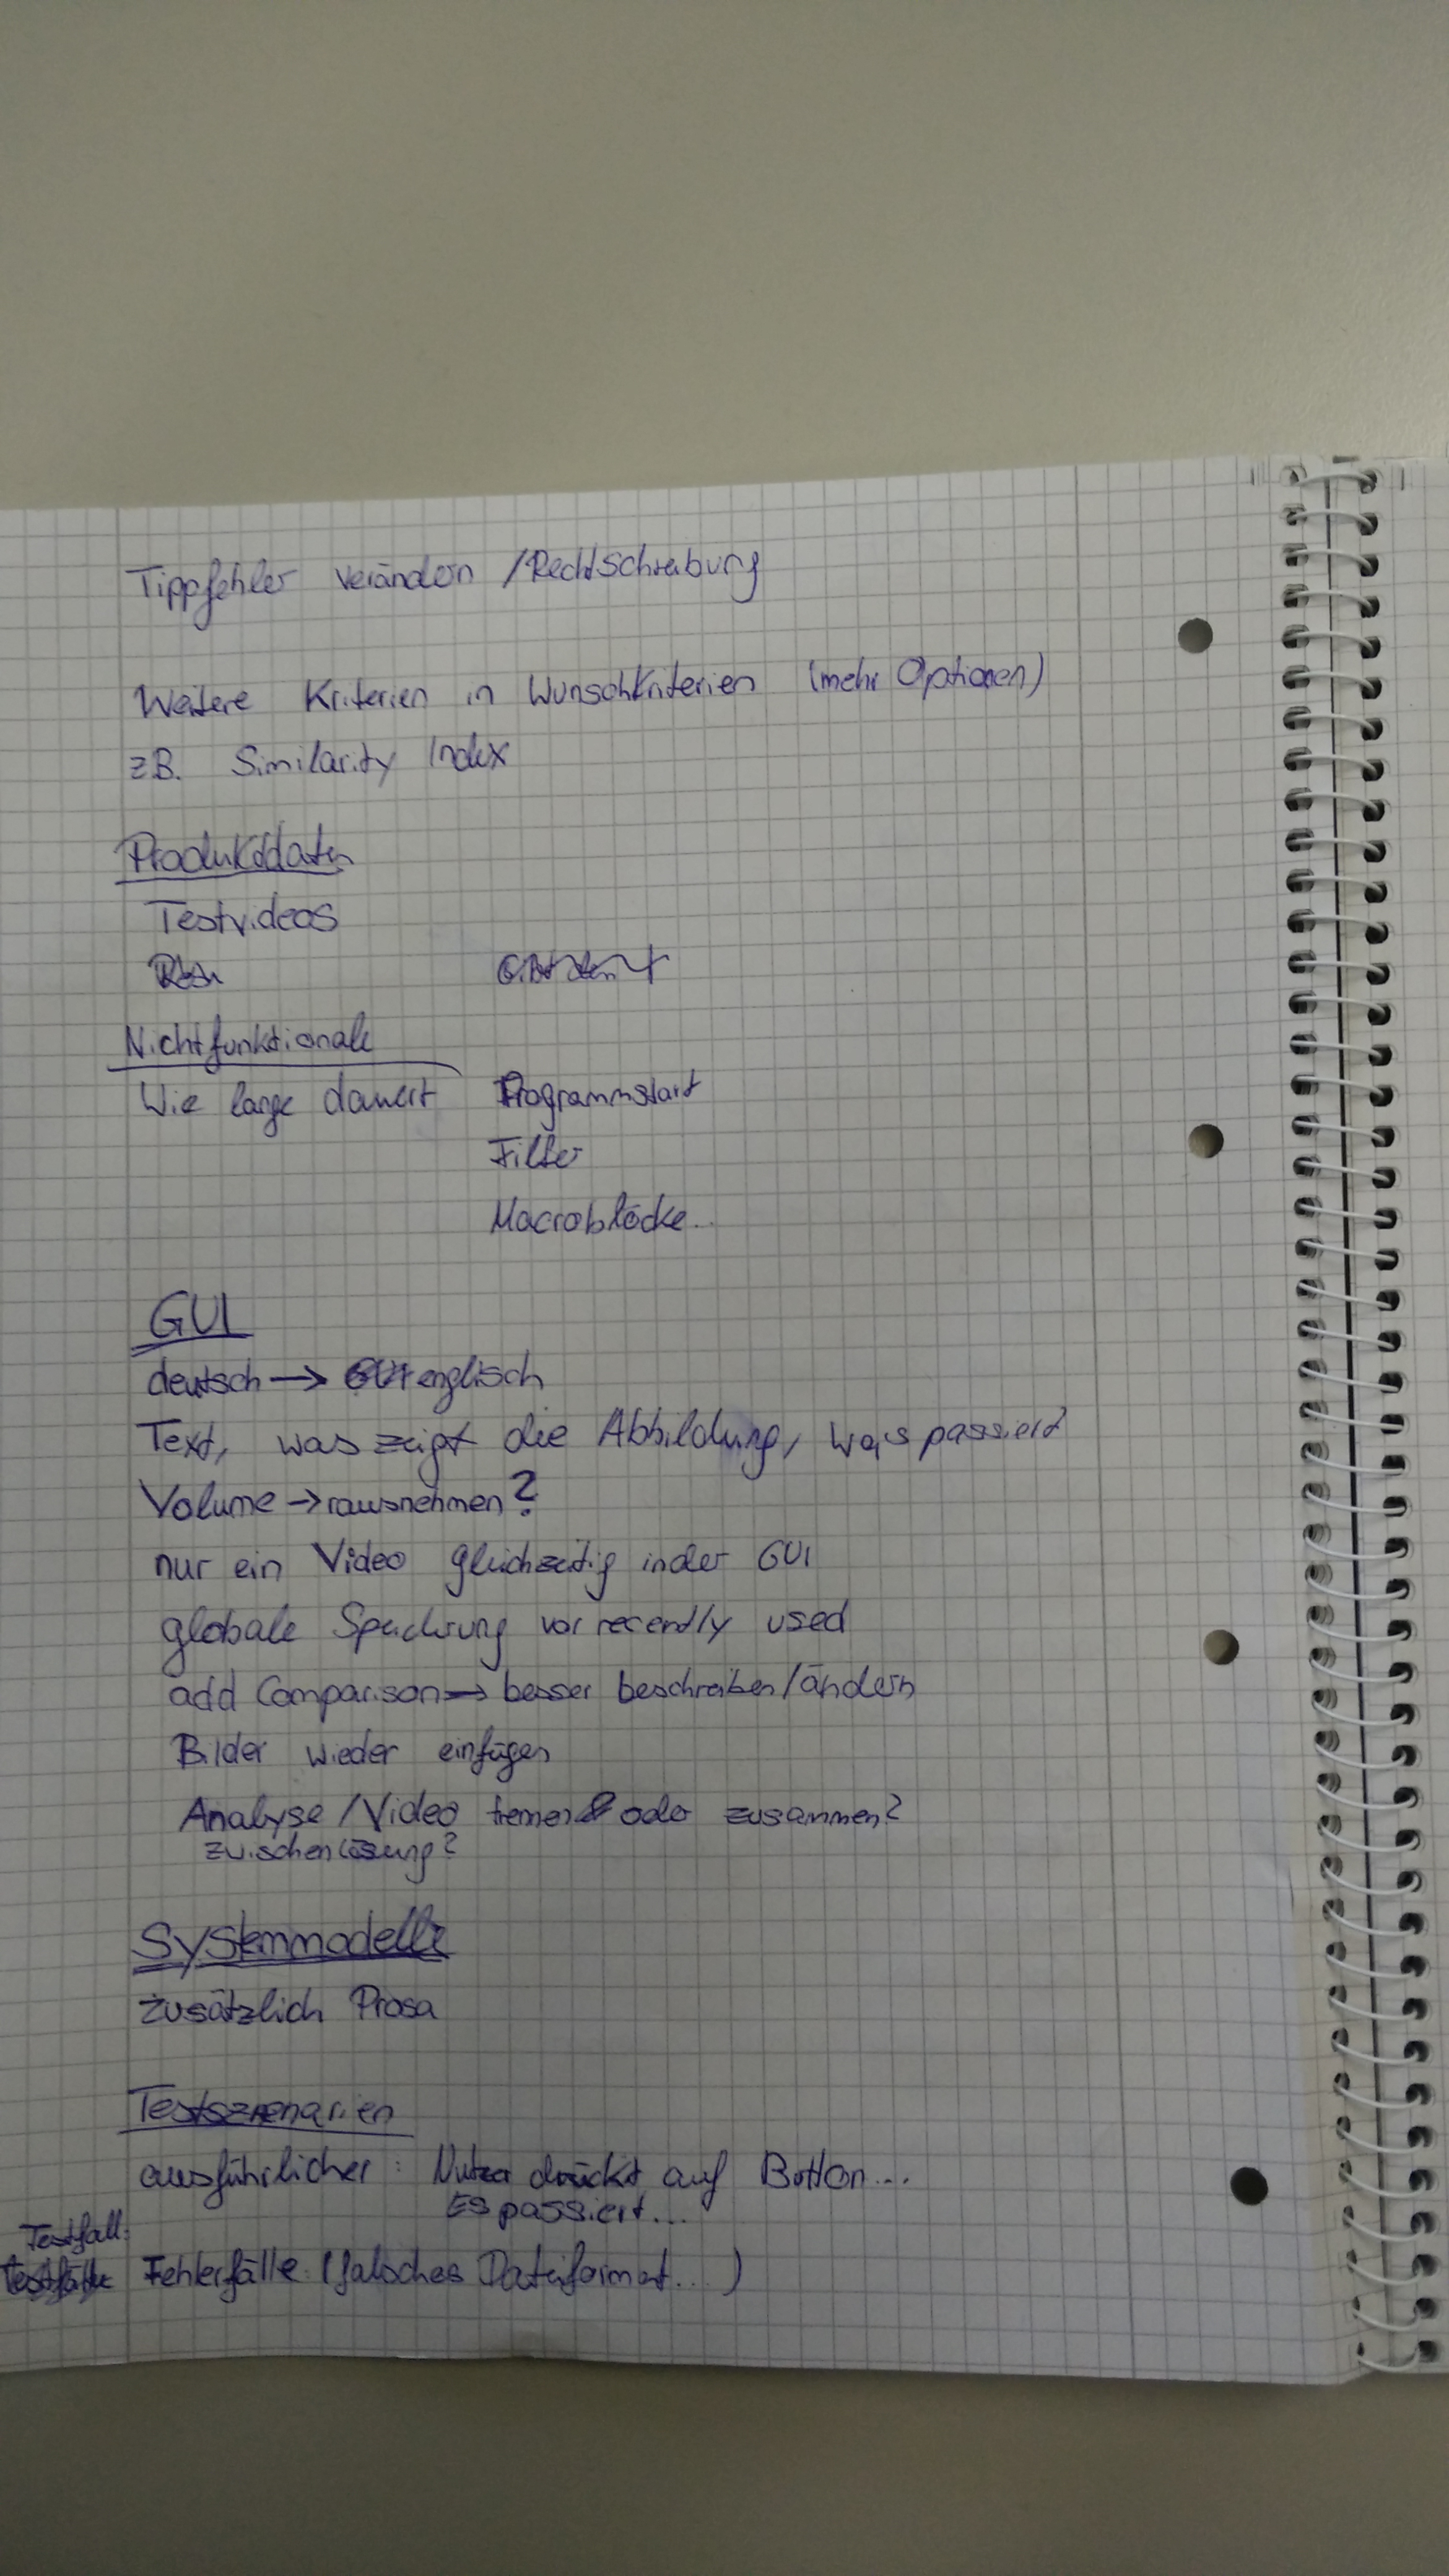 Tippfehler verändern /Rechtschreibung
Weitere Kriterien in Wunschkriterien (mehr Optionen)
z.B. Similarity Index
Produktdaten
Testvideos
Nichtfunktionale
Wie lange dauert Programmstart
Filter
Macroblöcke...
GUI
deutsch → englisch
Text, was zeigt die Abbildung, was passiert
Volume → rausnehmen?
nur ein Video gleichzeitig in der GUI
globale Speicherung von recently used
add Comparison → besser beschreiben/ändern
Bilder wieder einfügen
Analyse /Video trennen oder zusammen?
Zwischenlösung?
Systemmodelle
zusätzlich Prosa
Testszenarien
ausführlicher: Nutzer drückt auf Button...
Es passiert...
Testfall:
Fehlerfälle (falsches Dateiformat...)